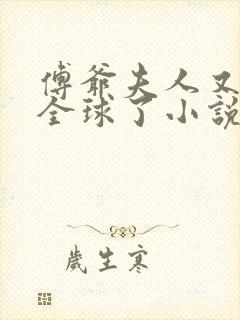 傅爺夫人又
全球了小說
歲生寒